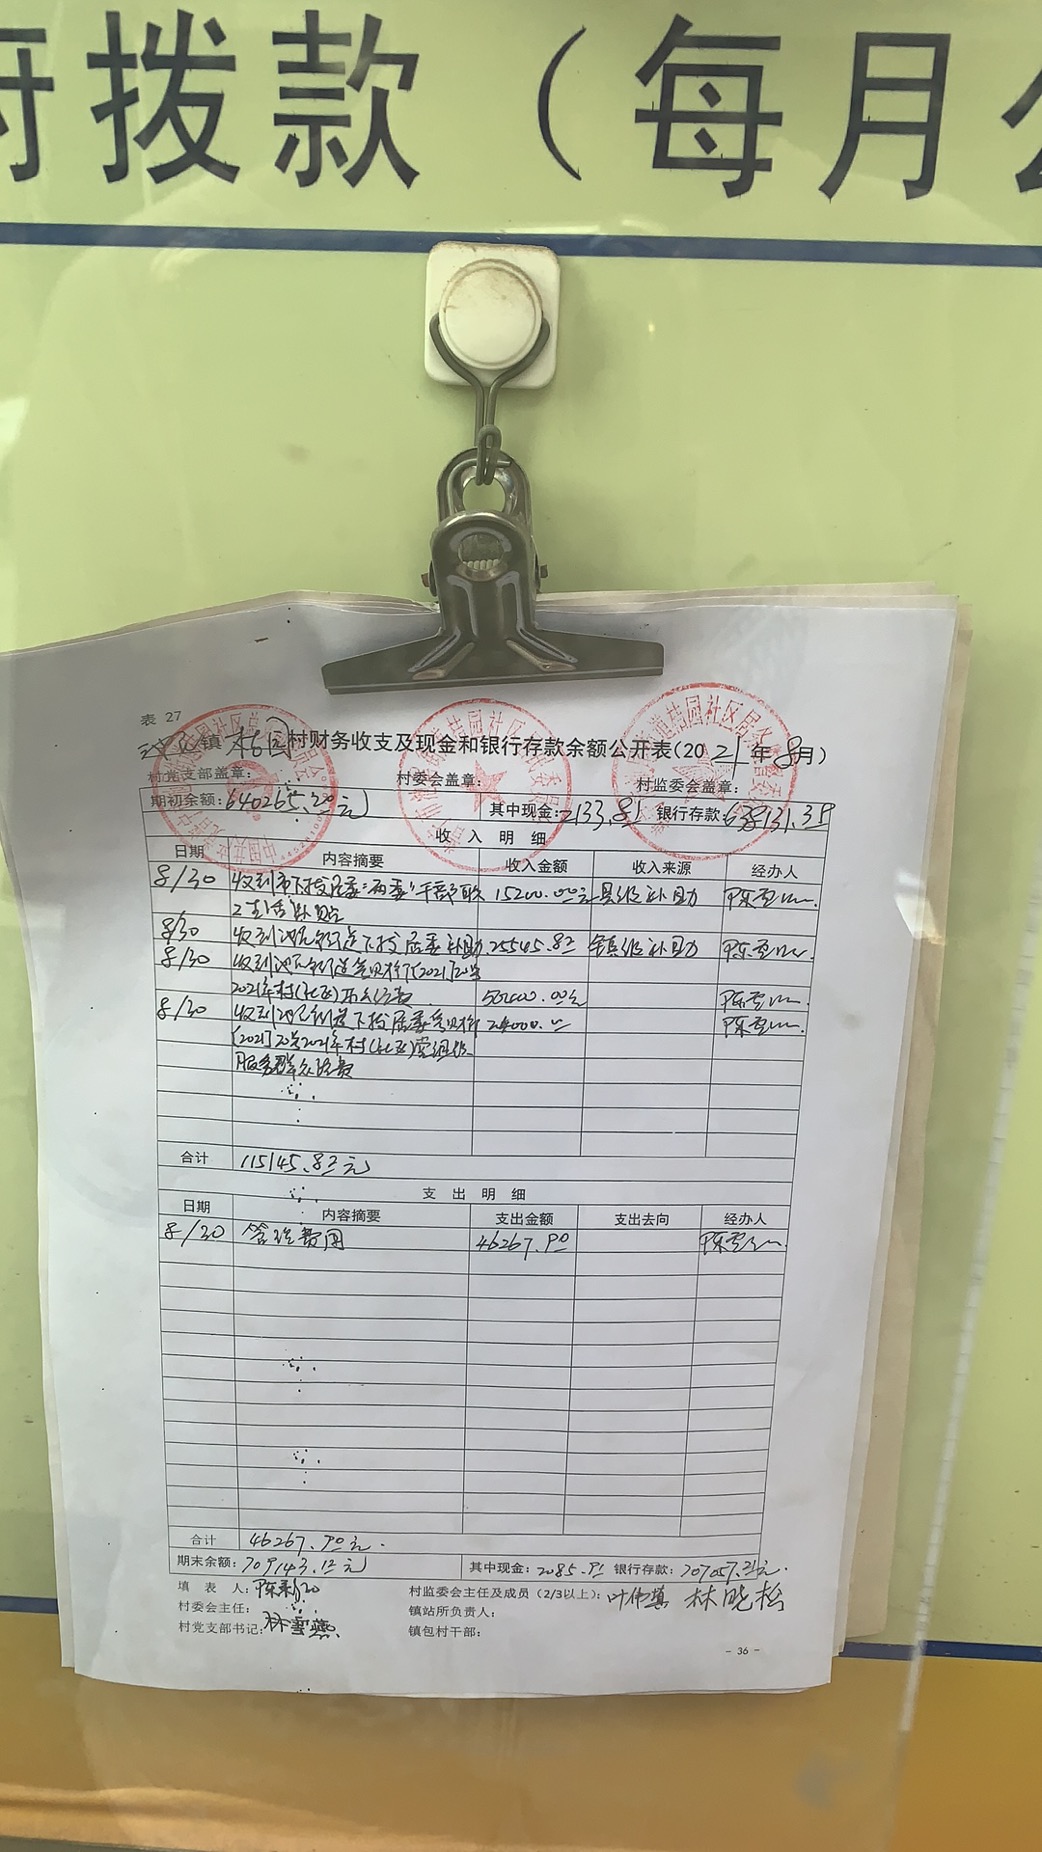 拨款（每月
表 27
镇 桔园村财务收支及现金和银行存款余额公开表(2021年8月)
村党支部盖章: 村委会盖章: 村监委会盖章:
期初余额:640265.20元 其中现金:2133.81 银行存款:638131.39
收 入 明 细
日期 内容摘要 收入金额 收入来源 经办人
8/30 收到市下拨居委"两委"干部 15200.00元 县级补助
生活补贴
8/30 收到 街道下拨居委补助 25545.82 镇级补助
8/30 收到 街道 (2021)20号
2021年村(社区)办公经费 50400.00元
8/30 收到 街道下拨居委 24000.00
[2021]20号2021年村(社区)党组织
服务群众经费
合计 115145.82元
支 出 明 细
日期 内容摘要 支出金额 支出去向 经办人
8/30 管理费用 46267.90
合计 46267.90元.
期末余额:709143.12元 其中现金:2085.91 银行存款:707057.21元.
填 表 人:
村监委会主任及成员(2/3以上): 林晓松
村委会主任: 镇站所负责人:
村党支部书记:林雪燕 镇包村干部:
- 36 -